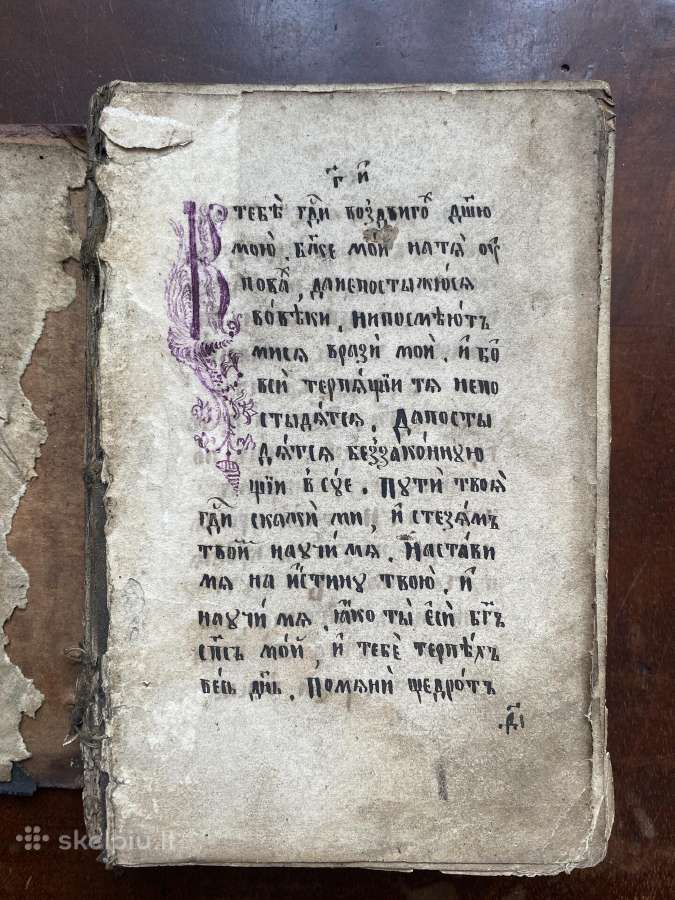 г҃ и҃
К тебѣ гд҃и воздвиго́ дш҃ю
мою̀. бж҃е мой на тѧ̀ оу҆
пова́, да не постыжю́сѧ
во вѣ́ки, ни посмѣю́тъ
мисѧ врази̑ мой. и҆бо̀
вси́ терпѧ́щїи тѧ непо
стыдѧ́тсѧ. Да посты
дѧ́тсѧ беззако́нную
щїи в сꙋ́е. Пꙋти̑ твоѧ̀
гд҃и скажи́ ми, и҆ стезѧ́мъ
твои́ наꙋчи́ мѧ. Наста́ви
мѧ на и҆́стинꙋ твою̀. и҆
наꙋчи́ мѧ. ꙗ҆́ко ты̀ е҆си́ бг҃ъ
сп҃съ мо́й, и҆ тебѐ терпѣ́хъ
ве́сь дн҃ь. Помѧни̑ щедро́тъ
д҃і
skelbiu.lt